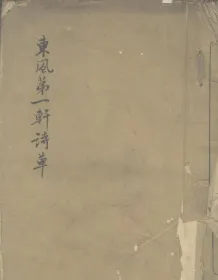 東風第一軒詩草